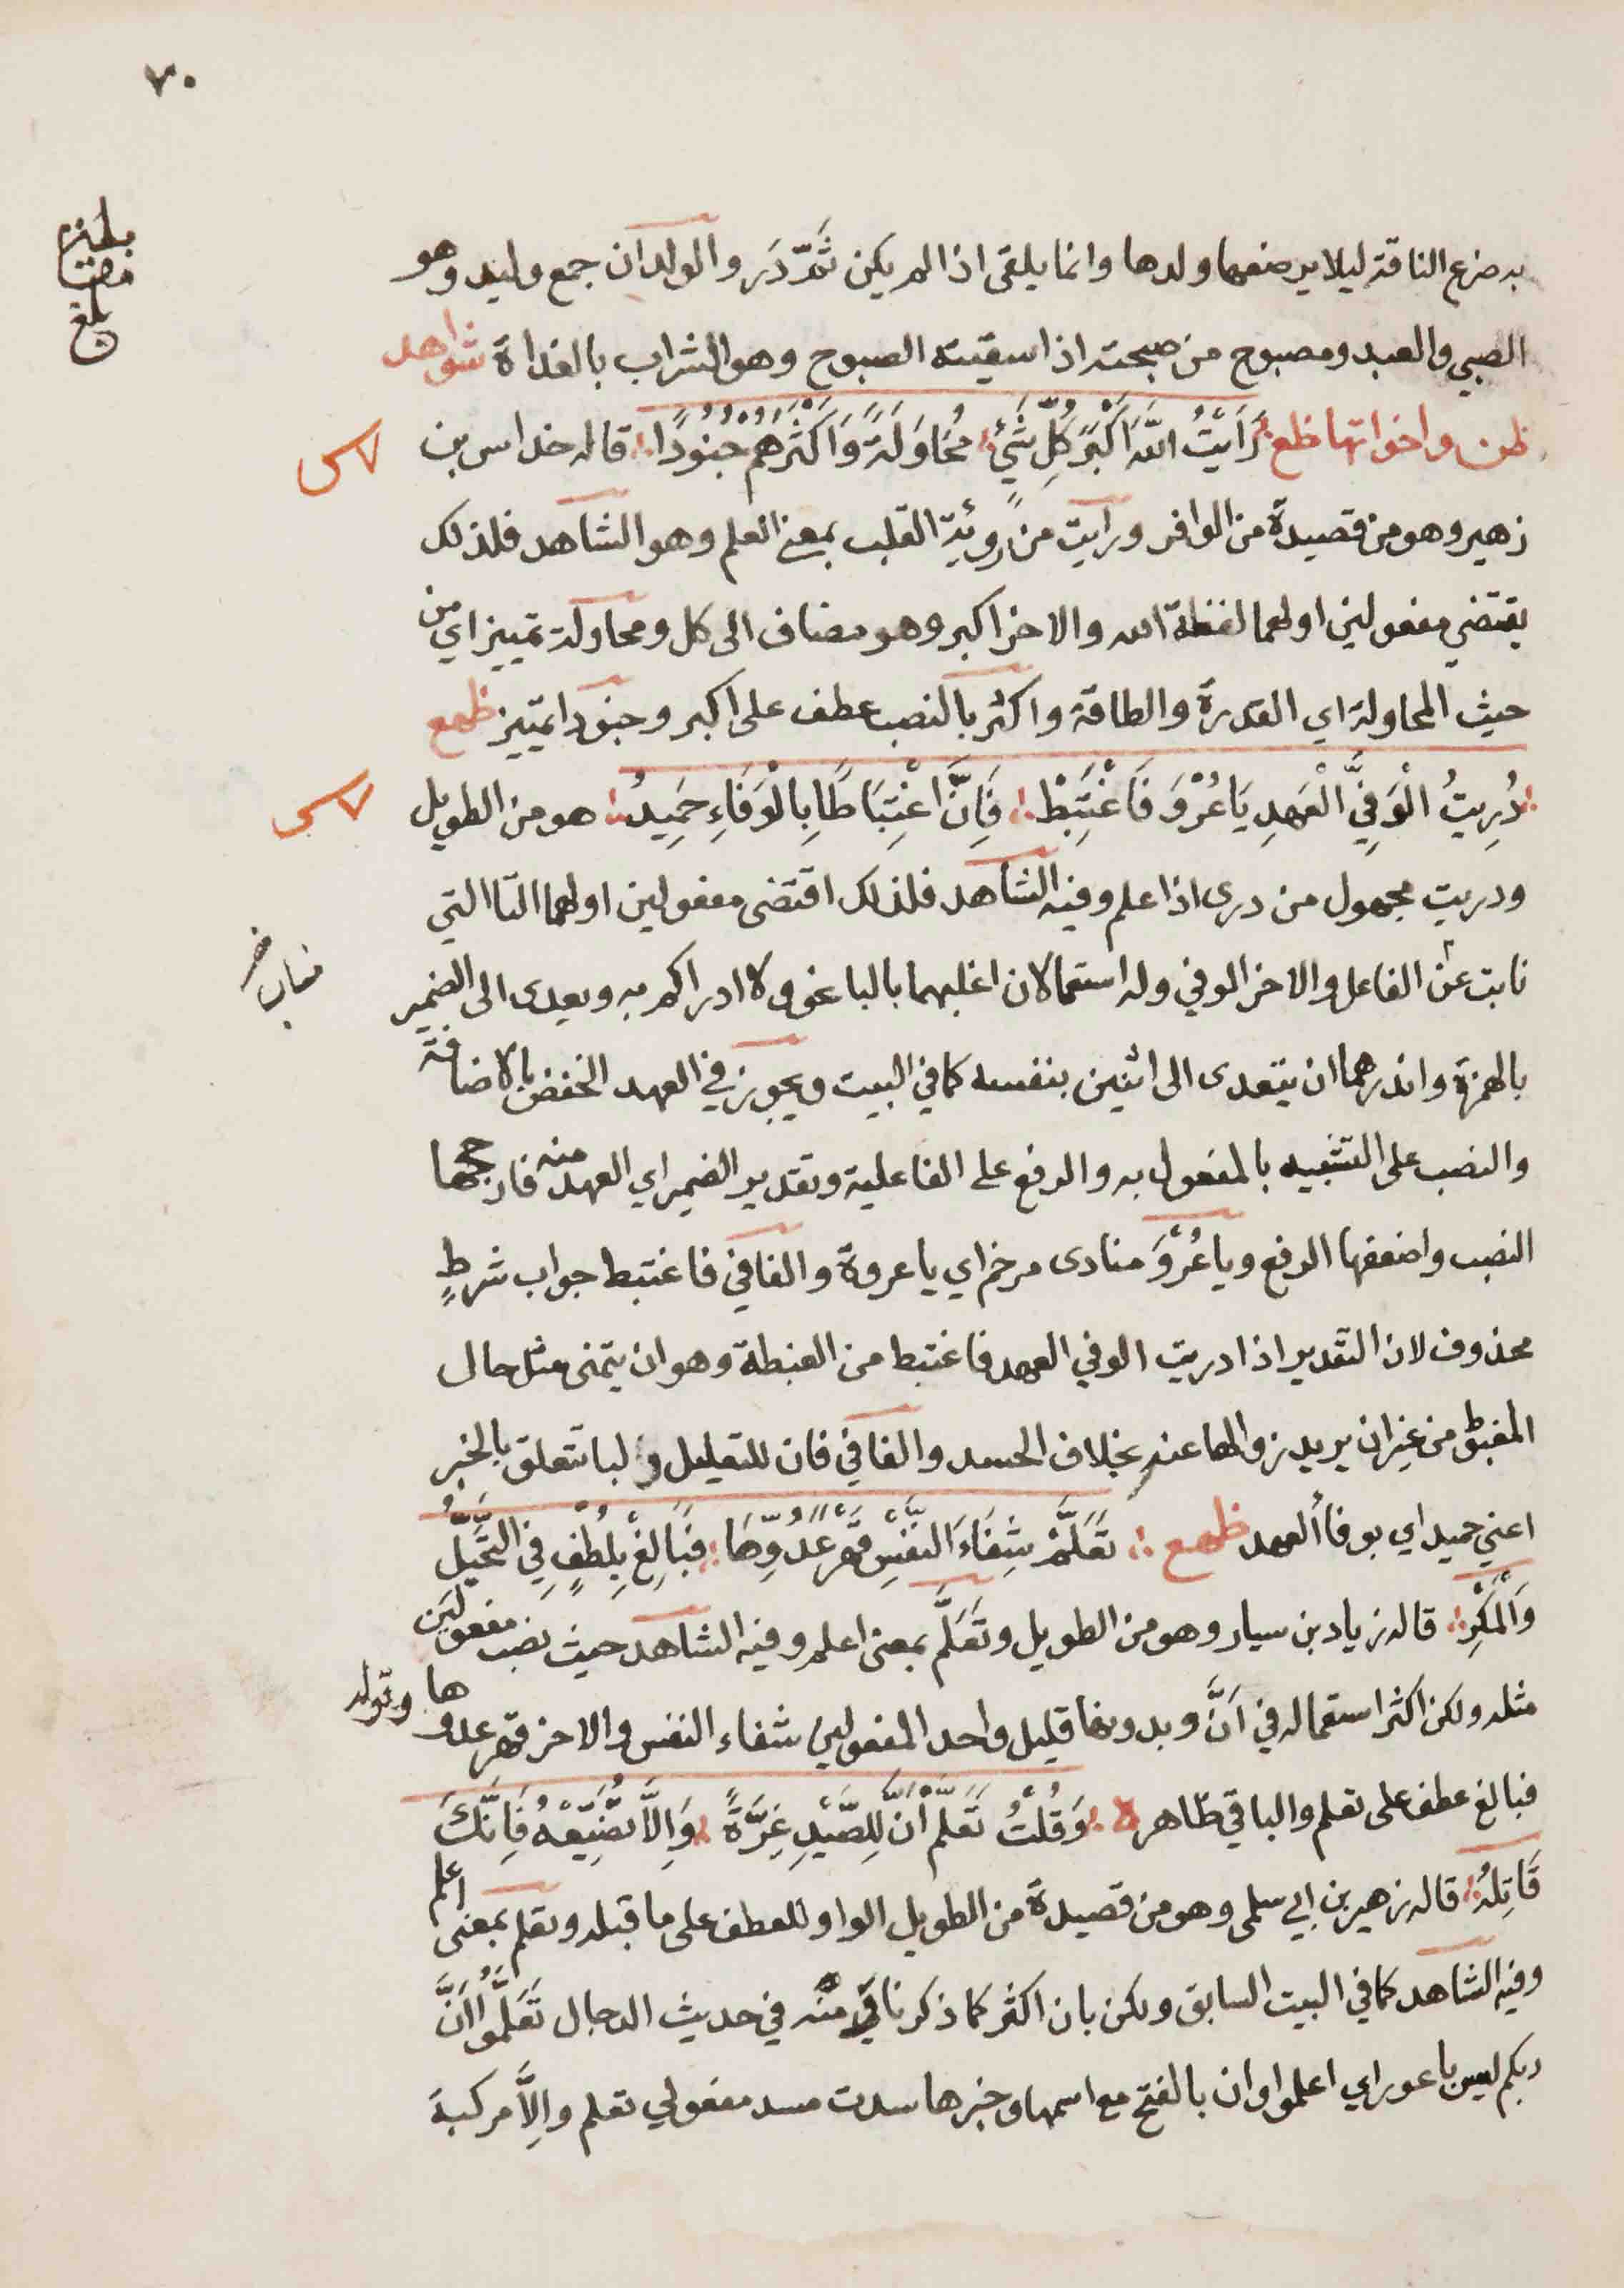 ٧٠
به ضرع الناقة ليلا يرضعها ولدها وانما يلقى اذا لم يكن ثَمّ دَر والولدان جمع وليد وهو
الصبي والعبد ومصبوح من صبحته اذا سقيته الصبوح وهو الشراب بالغداة شواهد
ظن واخواتها ظع رَأَيْتُ اللَّهَ أَكْبَرَ كُلِّ شَيْءٍ مُحَاوَلَةً وَأَكْثَرَهُمْ جُنُودًا قاله خداس بن
زهير وهو من قصيدة من الوافر ورايت من روئية القلب بمعنى العلم وهو الشاهد فلذلك
يقتضي مفعولين اولهما لفظة الله والاخر اكبر وهو مضاف الى كل ومحاولة تمييز اي من
حيث المحاولة اي القدرة والطاقة واكثر بالنصب عطف على اكبر وجنودا تمييز ظهع
دُرِيتُ الْوَفِيَّ الْعَهْدِ يَا عُرْوَ فَاغْتَبِطْ فَإِنَّ اغْتِبَاطًا بِالْوَفَاءِ حَمِيدُ هو من الطويل
ودريت مجهول من درى اذا علم وفيه الشاهد فلذلك اقتضى مفعولين اولهما التا التي
نابت عن الفاعل والاخر الوفي وله استعمالان اغلبهما بالبا نحو ولا ادراكم به ويعدى الى الضمير
بالهمزة واندرهما ان يتعدى الى اثنين بنفسه كما في البيت ويجوز في العهد الخفض بالاضافة
والنصب على التشبيه بالمفعول به والرفع على الفاعلية وتقدير الضمير اي العهد منه فارجحها
النصب واضعفها الرفع ويا عُرْوَ منادى مرخم اي يا عروة والفا في فاغتبط جواب شرطٍ
محذوف لان التقدير اذا دريت الوفي العهد فاغتبط من الغبطة وهو ان يتمنى مثل حال
المغبوط من غير ان يريد زوالها عنه بخلاف الحسد والفا في فان للتعليل والبا تتعلق بالخبر
اعني حميد اي بوفا العهد ظهع تَعَلَّمْ شِفَاءَ النَّفْسِ قَهْرَ عَدُوِّهَا فَبَالِغْ بِلُطْفٍ فِي التَّحَيُّلِ
وَالْمَكْرِ قاله زياد بن سيار وهو من الطويل وتَعَلَّم بمعنى اعلم وفيه الشاهد حيث نصب مفعولين
مثله ولكن اكثر استعماله في اَنَّ وبدونها قليل واحد المفعولين شفاء النفس والاخر قهر عدوها وقوله
فبالغ عطف على تعلم والباقي ظاهر ه وَقُلْتُ تَعَلَّمْ أَنَّ لِلصَّيْدِ غِرَّةً وَإِلَّا تُضَيِّعْهُ فَإِنَّكَ
قَاتِلُهُ قاله زهير بن ابي سلمى وهو من قصيدة من الطويل الواو للعطف على ما قبله وتعلم بمعنى اعلم
وفيه الشاهد كما في البيت السابق ولكن بان اكثر كما ذكرنا ومنه في حديث الدجال تَعَلَّمُوا اَنَّ
ربكم ليس باعور اي اعلموا وان بالفتح مع اسمها وخبرها سدت مسد مفعولي تعلم واِلَّا مركبة
بلغ